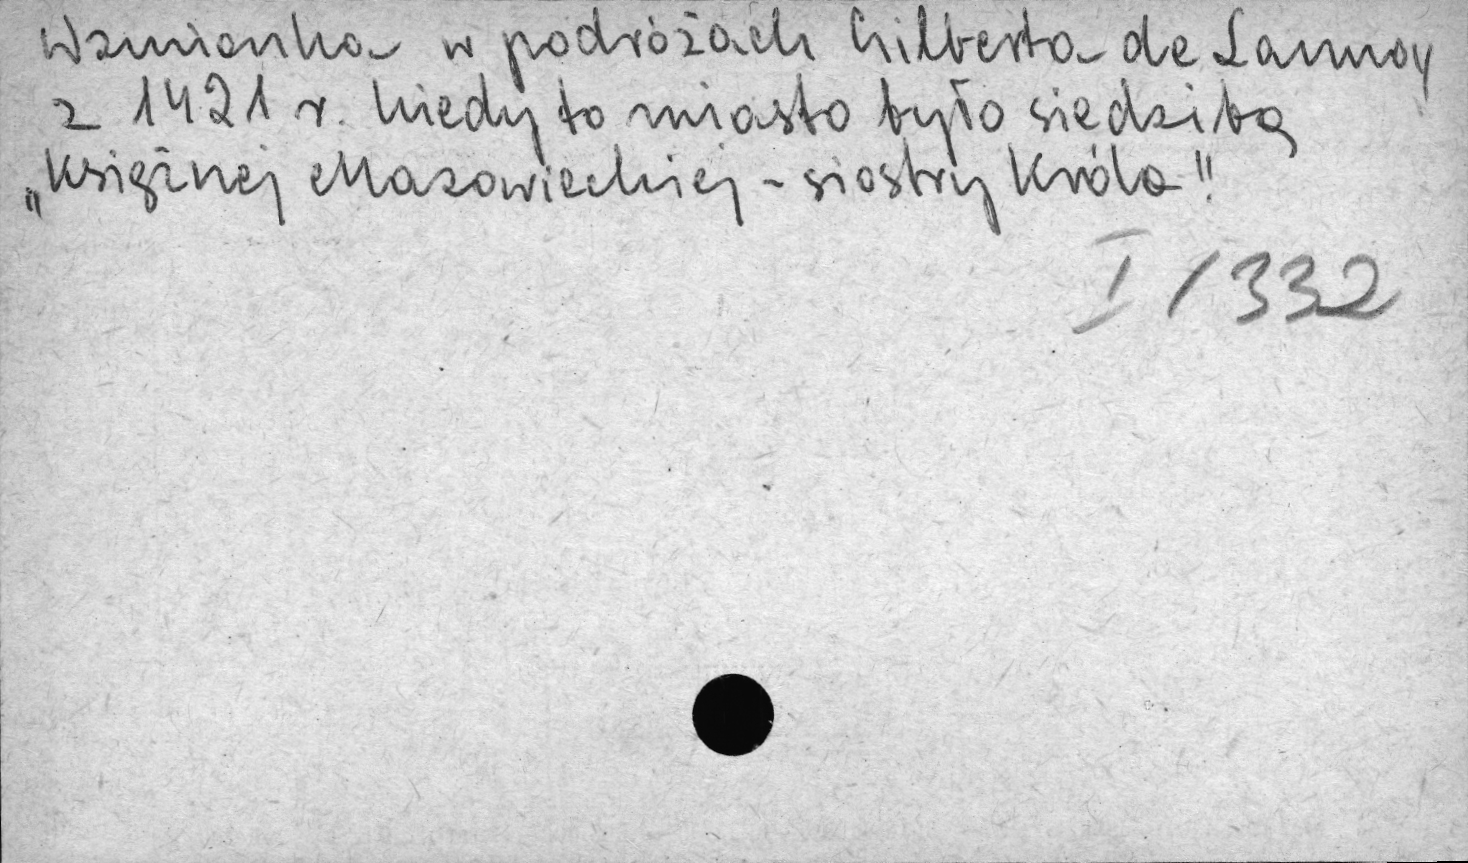 Wzmianka w podróżach Gilberta de Lannoy
z 1421 r. kiedy to miasto było siedzibą
„Księżnej Mazowieckiej - siostry Króla"
I/332